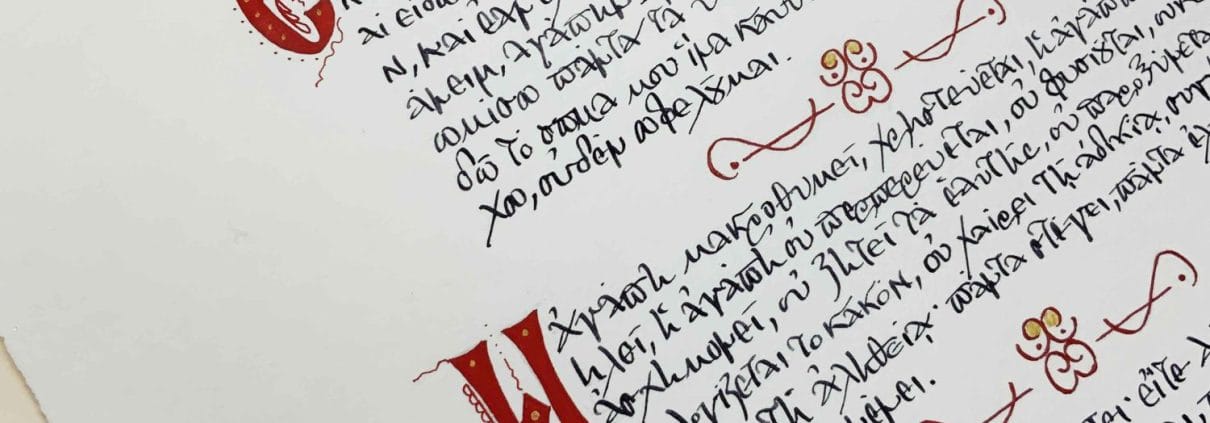 ν, καὶ ἐὰν
άνειν, ἀγάπην
ωμίσω πάντα τὰ
δῶ τὸ σῶμα μου ἵνα καυ
χω, οὐδὲν ὠφελοῦμαι.
Ἡ ἀγάπη μακροθυμεῖ, χρηστεύεται, ἡ ἀγάπ
ηλοῖ, ἡ ἀγάπη οὐ περπερεύεται, οὐ φυσιοῦται, οὐκ
ἀσχημονεῖ, οὐ ζητεῖ τὰ ἑαυτῆς, οὐ παροξύνετα
λογίζεται τὸ κακόν, οὐ χαίρει τῇ ἀδικίᾳ, συγ
τῇ ἀληθείᾳ· πάντα στέγει, πάντα
μένει.
εἴτε